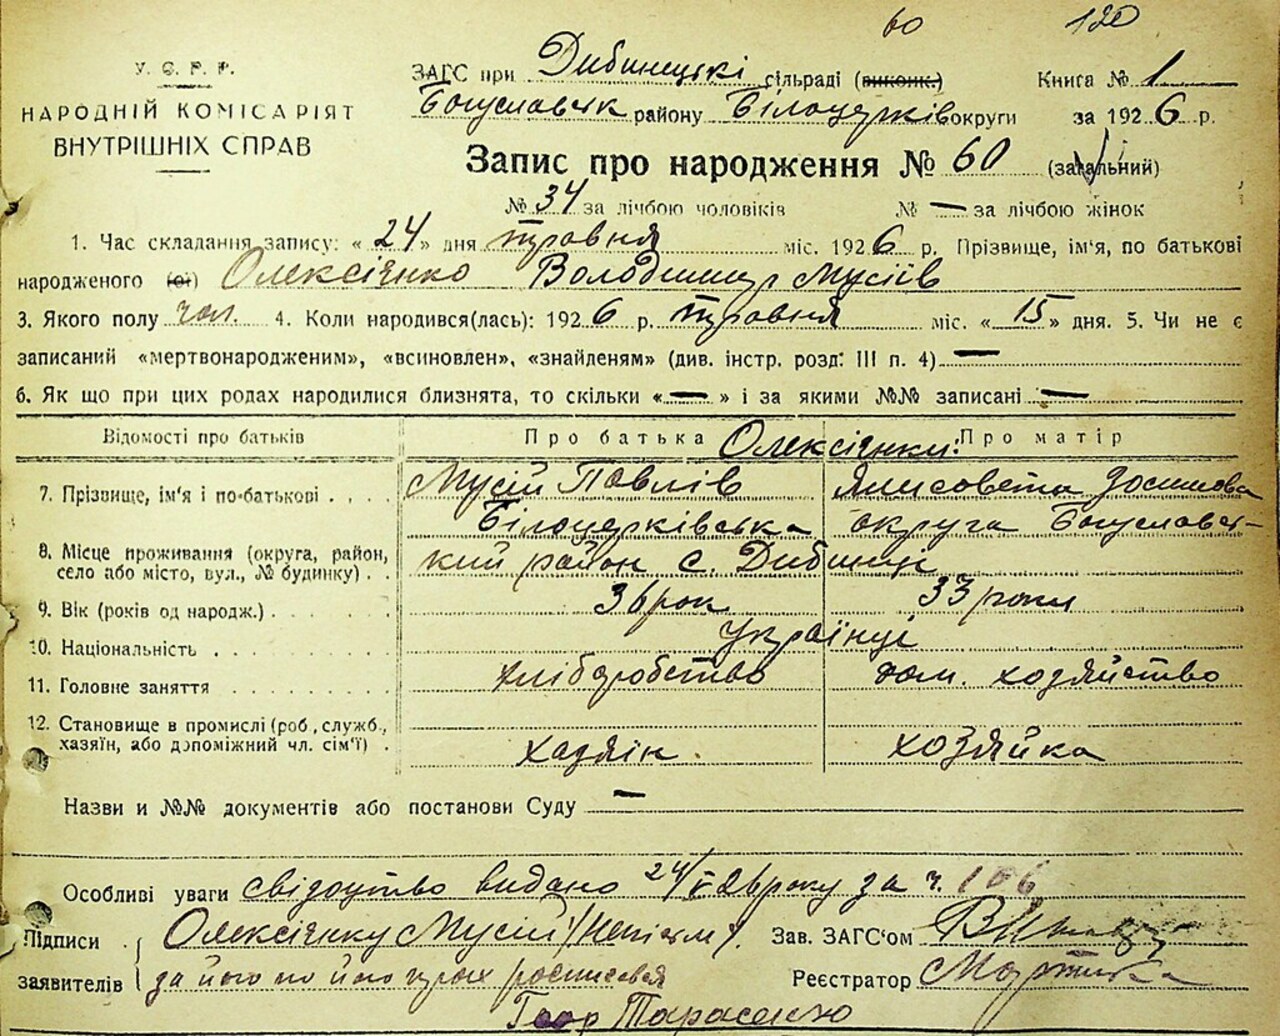 60 120
У. С. Р. Р.
НАРОДНІЙ КОМІСАРІЯТ
ВНУТРІШНІХ СПРАВ
ЗАГС при Дибинецькі сільраді (виконк.) Книга № 1
Богуславськ району Білоцерків округи за 1926 р.
Запис про народження № 60 (загальний)
№ 34 за лічбою чоловіків № — за лічбою жінок
1. Час складання запису: «24» дня травня міс. 1926 р. Прізвище, ім'я, по батькові
народженого (ої) Олексієнко Володимир Мусіїв
3. Якого полу чол. 4. Коли народився(лась): 1926 р. травня міс. «15» дня. 5. Чи не є
записаний «мертвонародженим», «всиновлен», «знайденям» (див. інстр. розд: III п. 4) —
6. Як що при цих родах народилися близнята, то скільки «—» і за якими №№ записані —
Відомості про батьків Про батька Олексієнки: Про матір
7. Прізвище, ім'я і по-батькові Мусій Павлів Ялисовета
8. Місце проживання (округа, район, село або місто, вул., № будинку) Білоцерківська округа Богуславсь-
кий район с. Дибинці
9. Вік (років од народж.) 36 рок 33 роки
10. Національність Українці
11. Головне заняття хліборобство дом. хозяйство
12. Становище в промислі (роб., служб., хазяїн, або допоміжний чл. сім'ї) хазяін. хозяйка
Назви и №№ документів або постанови Суду —
Особливі уваги свідоцтво видано 24/V 26 року за ч. 106
Підписи заявителів Олексієнку Мусій /неписьм/. Зав. ЗАГС'ом
за його по його прозх росписався Реєстратор
Тарасенко